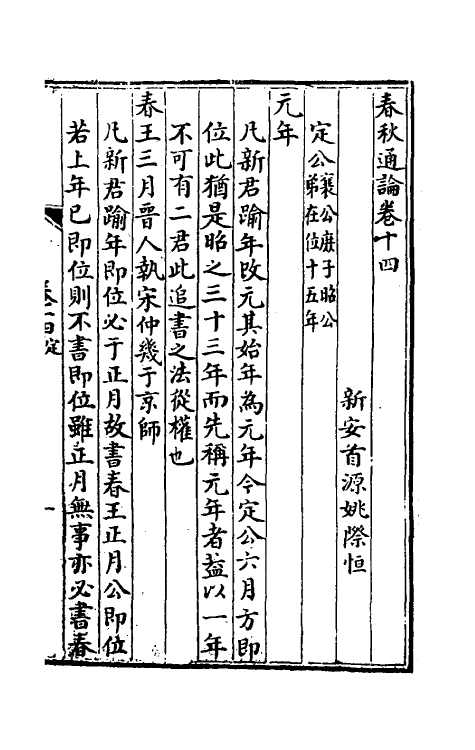 春秋通論卷十四
新安首源姚際恒
定公襄公庶子昭公弟在位十五年
元年
凡新君踰年改元其始年為元年今定公六月方即
位此猶是昭之三十三年而先稱元年者蓋以一年
不可有二君此追書之法從權也
春王三月晉人執宋仲幾于京師
凡新君踰年即位必于正月故書春王正月公即位
若上年已即位則不書即位雖正月無事亦必書春